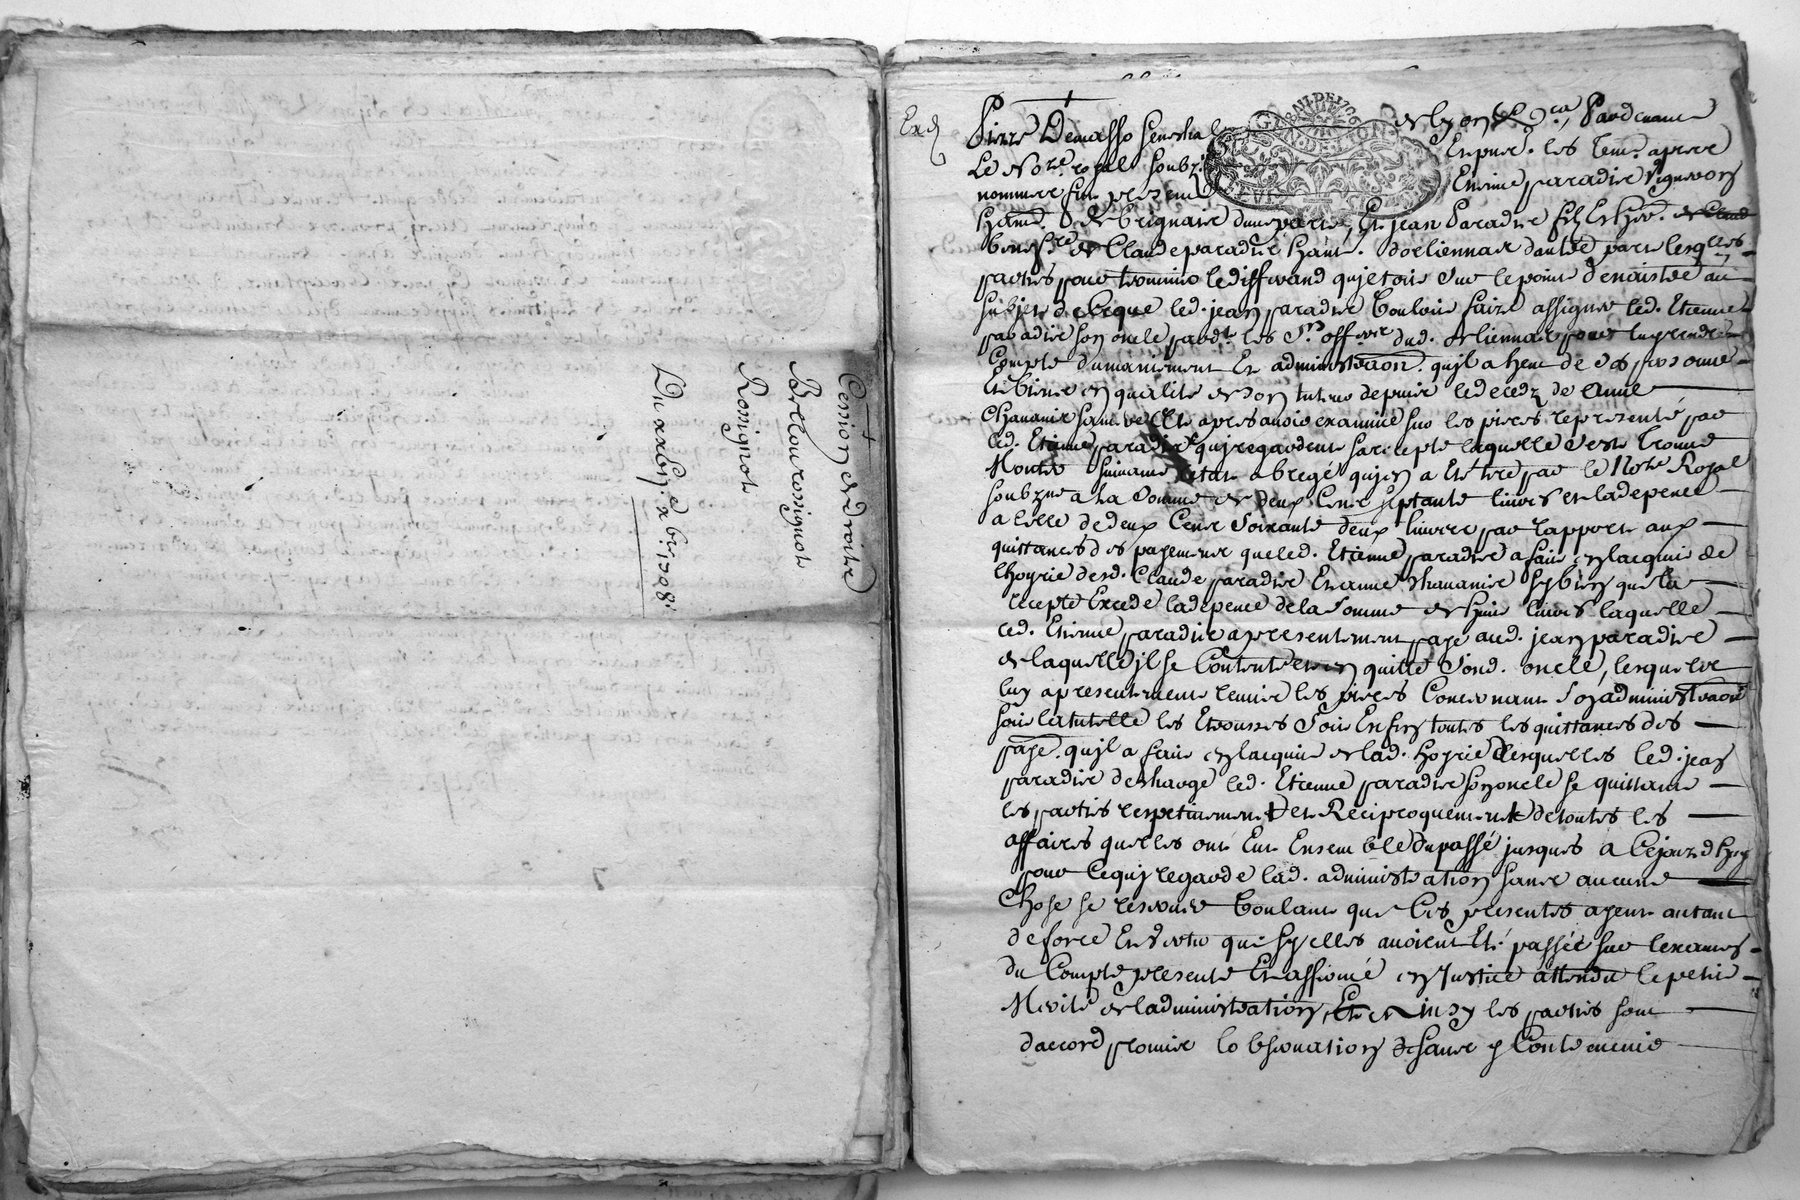 Cession de droitz
Pre Lou rossignol
Rossignol
Du xxbij e xbre 1708
Exd
Pierre Demasso seneschal de lyon & Ca, Pardevant
Le No.re royal soubz. Et pnce. les tem. apres
nommez fut present Etienne paradize vigneron
habit. de brignaix dune part, Et jean Paradize filz Et her.
benef.re de Claude paradize habit. dorliennas dautre part lesqlles
parties pour terminer le differand quj etoit sur le point denaistre au
subjet de ce que led. jean paradize vouloit faire assigner led. Etienne
paradize son oncle pardt. les Srs offers dud. orliennas pour luy rendre
Compte du maniement Et administraon. quil a heue de sa personne
Et biens en qualité de son tuteur depuis le decedz de Anne
Chavanis sa mere Et apres avoir examiné sur les pieces representé par
led. Etienne paradize quj regardent sa recepte laquelle sest trouvé
Monter suivant letat abregé quj en a Eté tiré par le Nore Royal
soubzne a la somme de deux Cent septante livres et la depence
a Celle de deux Cent soixante deux livres par rapport aux
quittances des payements que led. Etienne paradize a fait en lacquit de
lhoyrie desd. Claude paradize Et anne Chavanis sy bien que la
recepte Excede la depence de la somme de huit livres laquelle
led. Etienne paradize a presentement payé aud. jean paradize
de laquelle jl se Contente et en quitte sond. oncle, lesquel
luy a presentement remis les pieces Concernant son administraon
soit la tutelle les Etrousses soit Enfin toutes les quittances des
paye. quil a fait en lacquit de lad. hoyrie desquelles led. jean
paradize descharge led. Etienne paradize son oncle se quittants
les parties respectivement et Reciproquement de toutes les
affaires quelles ont Eut Ensemble du passé jusques a Cejourdhuy
pour Cequj regarde lad. administration sans aucune
Chose se reserver voulant que Ces presentes ayent autant
de force Et vertu que sy elles avoient Eté passée sur lexamen
du Compte presenté Et affirmé en justice attendu le peti
Merite de ladministration, Et ainsy les parties sont
daccord promis lobservation de sans y Contrevenir